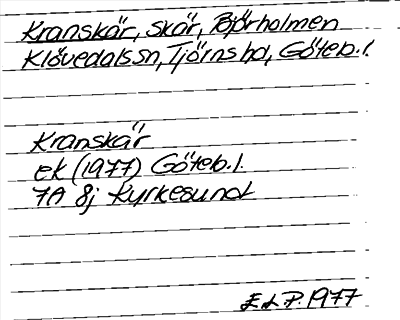 Kranskär, skär, Björholmen
Klövedals sn, Tjörns hd, Göteb. l.
Kranskär
ek (1977) Göteb. l.
7A 8j Kyrkesund
E d P. 1977